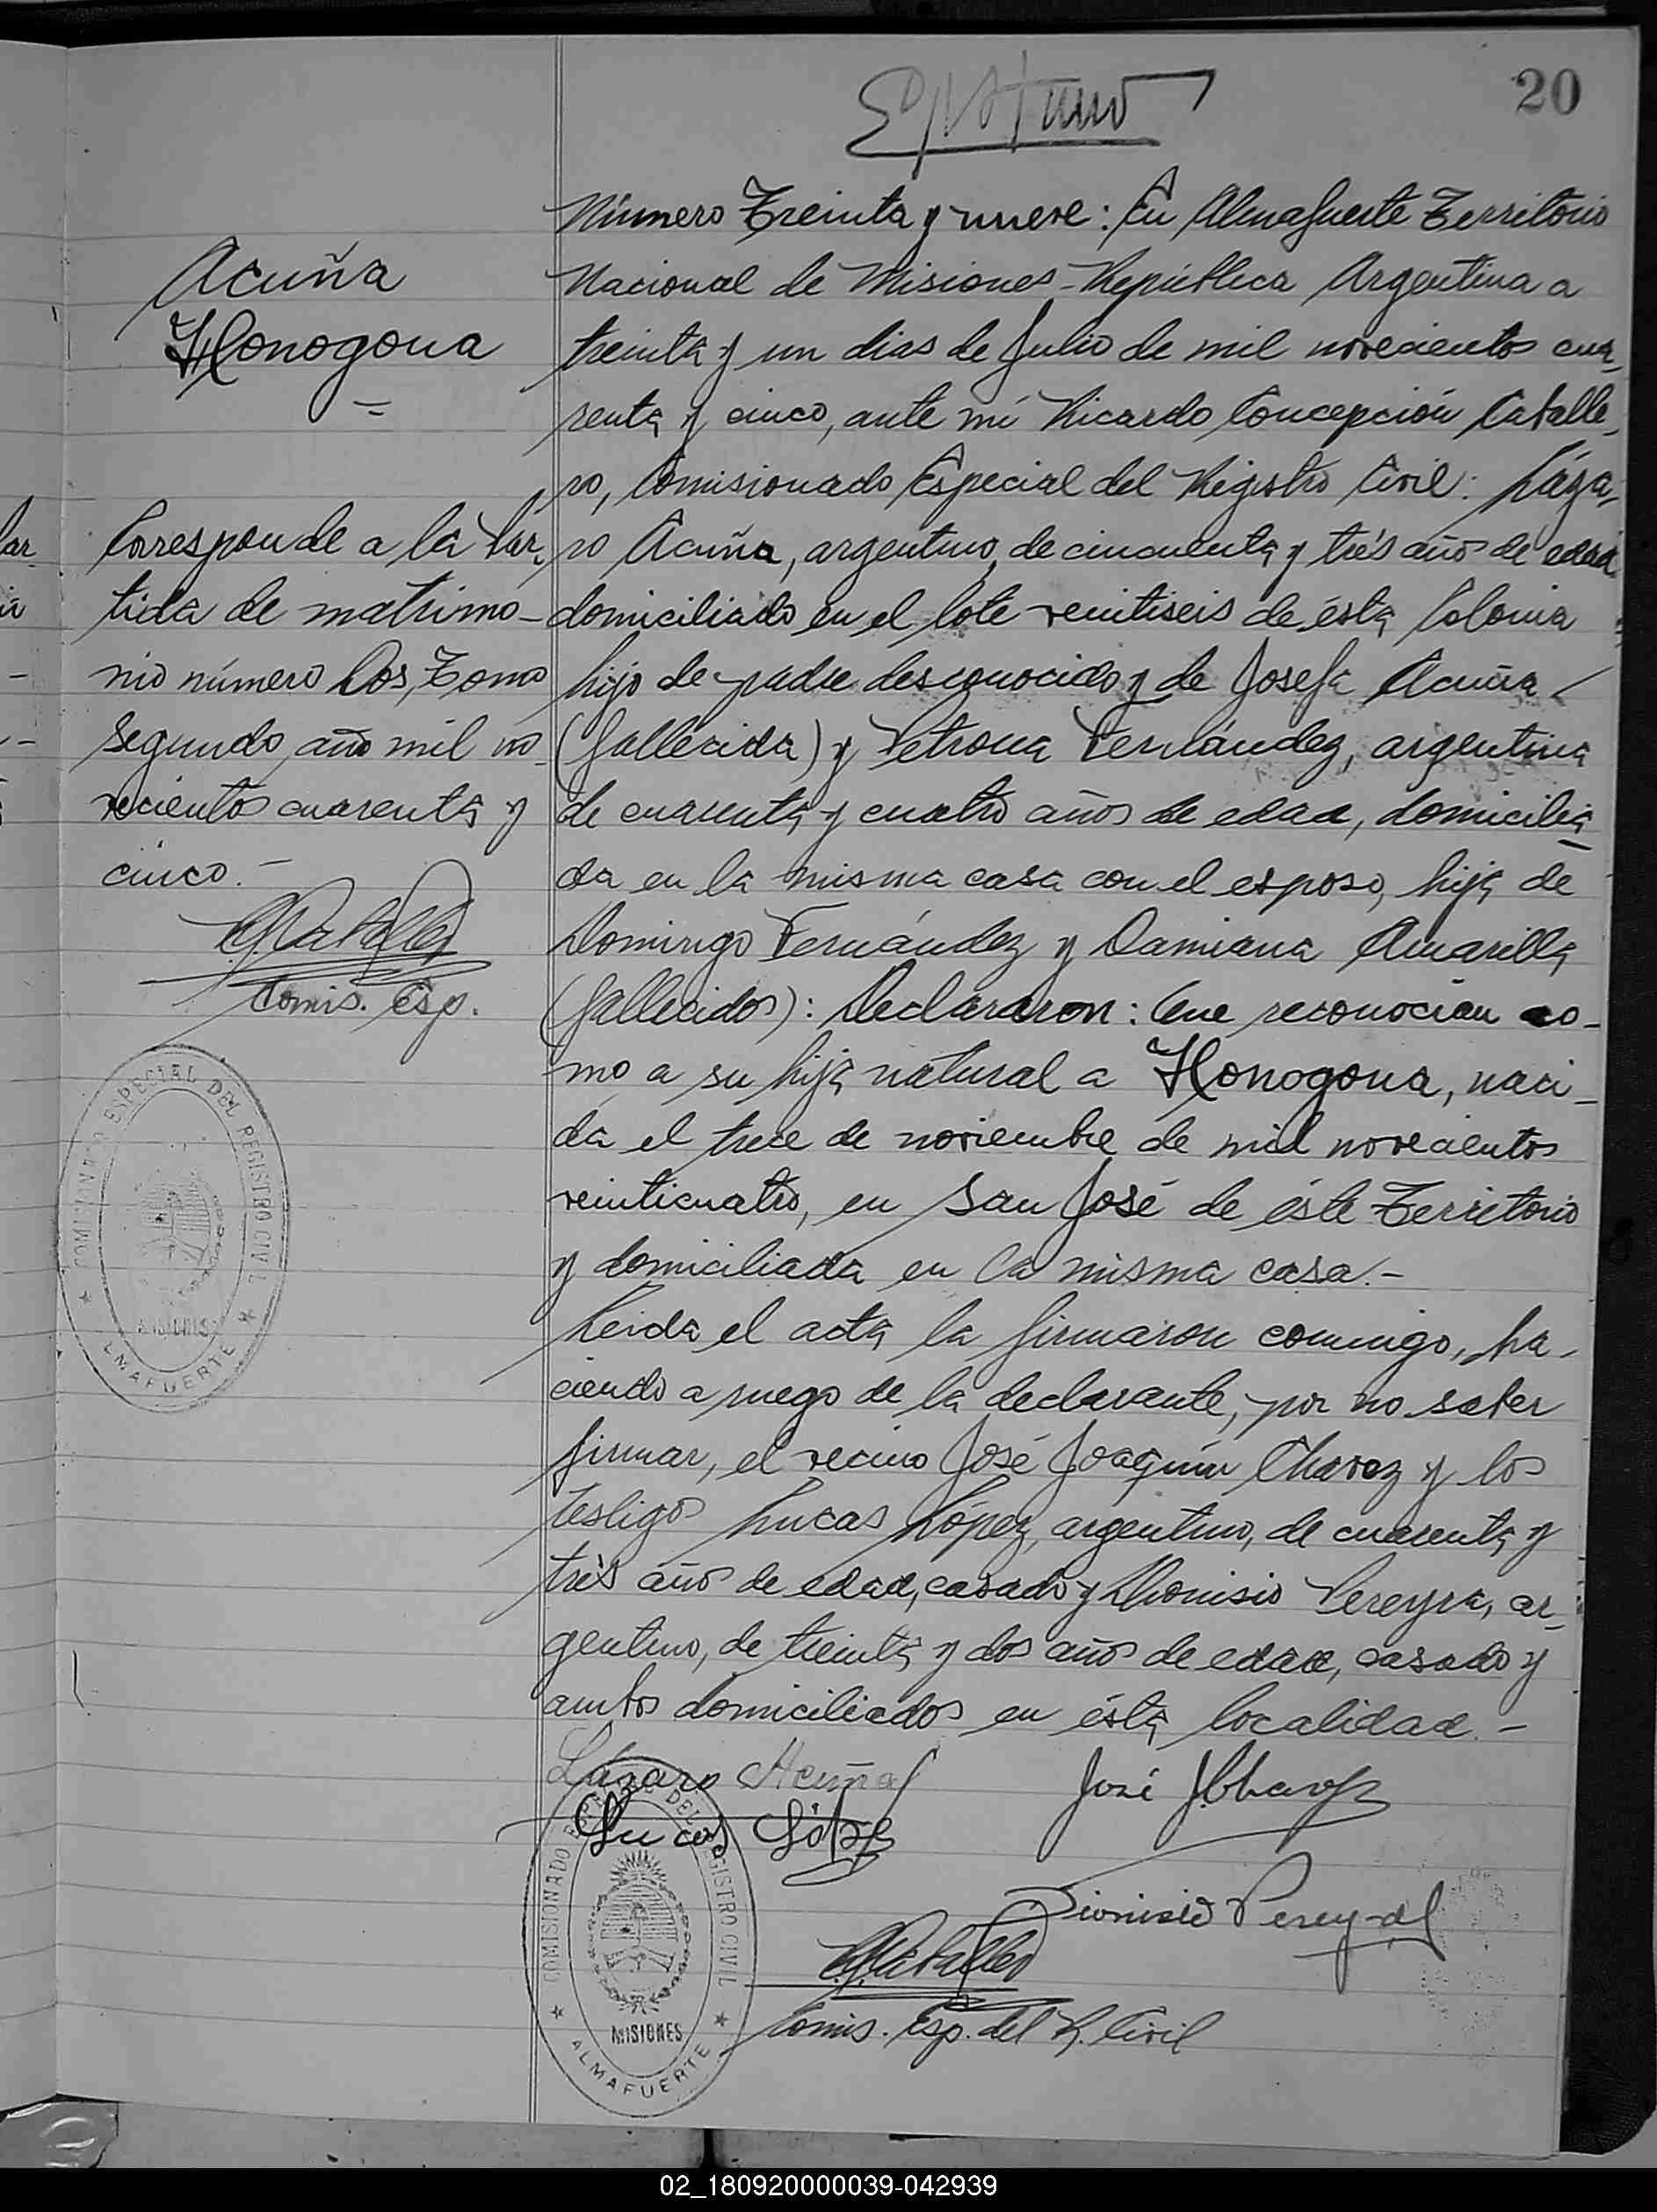 20
Número Treinta y nueve: En Almafuerte Territorio
Nacional de Misiones-República Argentina a
treinta y un dias de Julio de mil novecientos cua_
renta y cinco, ante mí Ricardo Concepción Caballe_
ro, Comisionado Especial del Registro Civil: Láza_
ro Acuña, argentino, de cincuenta y trés años de edad
domiciliado en el lote veintiseis de ésta Colonia
hijo de padre desconocido y de Josefa Acuña
(fallecida) y Petrona Fernández, argentina
de cuarenta y cuatro años de edad, domicilia_
da en la misma casa con el esposo, hija de
Domingo Fernández y Damiana Amarilla
(fallecidos): Declararon: Que reconocían co_
mo a su hija natural a Honogona, naci_
da el trece de noviembre de mil novecientos
veinticuatro, en San José de éste Territorio
y domiciliada en la misma casa.-
Leida el acta la firmaron conmigo, ha_
ciendo a ruego de la declarante, por no saber
firmar, el vecino José Joaquín Chavez y los
testigos Lucas López, argentino, de cuarenta y
trés años de edad, casado y Dionisio Pereyra, ar_
gentino, de treinta y dos años de edad, casado y
ambos domiciliados en ésta localidad.-
Lázaro Acuña
José J. Chavez
Lucas López
Dionisio Pereyra
Comis. Esp. del R. Civil
COMISIONADO ESPECIAL DEL REGISTRO CIVIL
MISIONES
ALMAFUERTE
Acuña
Honogona
Corresponde a la Par_
tida de matrimo_
nio número Dos, Tomo
segundo, año mil no_
vecientos cuarenta y
cinco.-
Comis. Esp.
COMISIONADO ESPECIAL DEL REGISTRO CIVIL
MISIONES
ALMAFUERTE
02_180920000039-042939